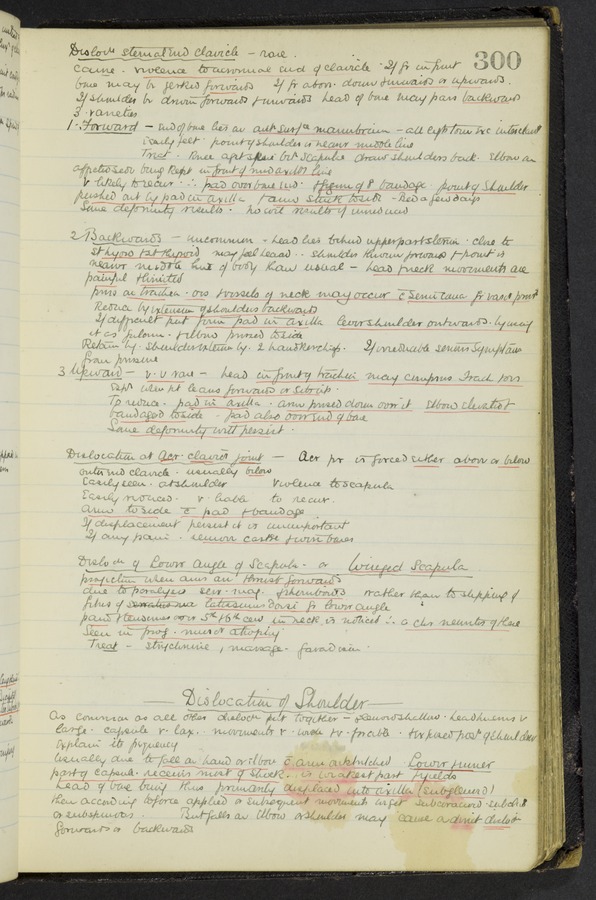 300
Disloc. sternal end clavicle - rare.
cause. violence to acromial end of clavicle. If fr in front
bone may be jerked forwards If fr above. down inwards or upwards.
If shoulder be driven forwards & inwards head of bone may pass backwards
3 varieties
1. Forward - end of bone lies on ant surf of manubrium - all lig's torn exc
easily felt. point of shoulder is nearer middle line
Treat. Knee against spine bet scapulae draw shoulders back. Elbow on
opposite side being kept in front of mid axill line
v likely to recur ∴ pad over bone end. & figure of 8 bandage. point of Shoulder
pushed out by pad in axilla & arm to side - Bed a few days
Some deformity results. no evil results if unreduced
2 Backwards - uncommon - head lies behind upper part sternum. close to
st hyoid & st thyroid may feel head. shoulder thrown forward & point is
nearer middle line of body than usual - head & neck movements are
painful & limited
press on trachea. oes & vessels of neck may occur c̄ semi coma fr vasc press
Reduce by extension of shoulders backwards
If difficult put firm pad in axilla lever shoulder outwards. by using
it as fulcrum. & elbow pressed to side
Retain by. shoulders by. 2 handkerchiefs. If irreducible serious symptoms
from pressure
3 Upward - v. v rare - head in front of trachea may compress Trach & oes
Dept when pt leans forward or
To reduce. pad in axilla. arm pressed down over it elbow elevated
bandaged to side - pad also over end of bone
Some deformity will persist.
Dislocation at acr. clavicr joint - Acr pr is forced either above or below
outer end clavicle. usually below
Easily seen. at shoulder violence to scapula
Easily reduced. v liable to recur.
arm to side c̄ pad & bandage
If displacement persist it is unimportant
If any pain. remove cartil & wire bones
Disloc of Lower angle of Scapula. or Winged Scapula
projection when arms are thrust forwards
due to paralysis serr. mag. & rhomboids rather than to slipping of
fibres of latissimus dorsi fr lower angle
pain & tenderness over 5th & 6th cerv in neck is noticed ∴ a chr neuritis of these
Seen in prog. muscr atrophy
Treat - strychnine, massage. faradism.
Dislocation of Shoulder
As common as all other dislocn put together - glenoid shallow. head humerus v
large. capsule v. lax. movements v. wide & v. forcible. & exposed post of shoulder
explain its frequency
Usually due to fall on hand or elbow c̄ arm outstretched Lower & inner
part of capsule. receives most of shock. is weakest part & yields
Head of bone being thus primarily displaced into axilla (subglenoid)
then according to force applied or subsequent movements we get subcoracoid subclav
or subspinous. But falls on elbow or shoulder may cause a direct disloc
forwards or backwards